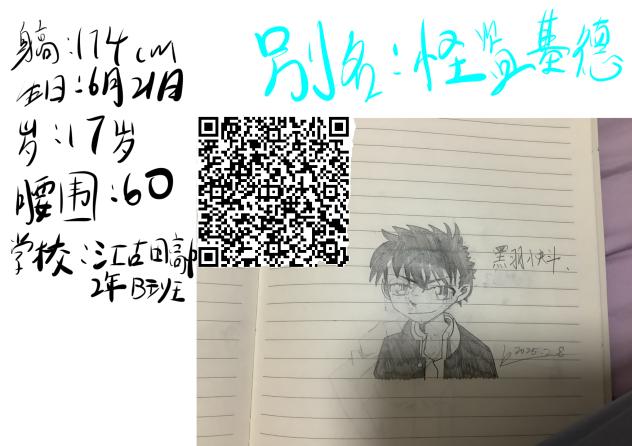 身高:174cm
生日:6月21日
岁:17岁
腰围:60
学校:江古田高
2年B班
别名:怪盗基德
黑羽快斗.
2025.2.8